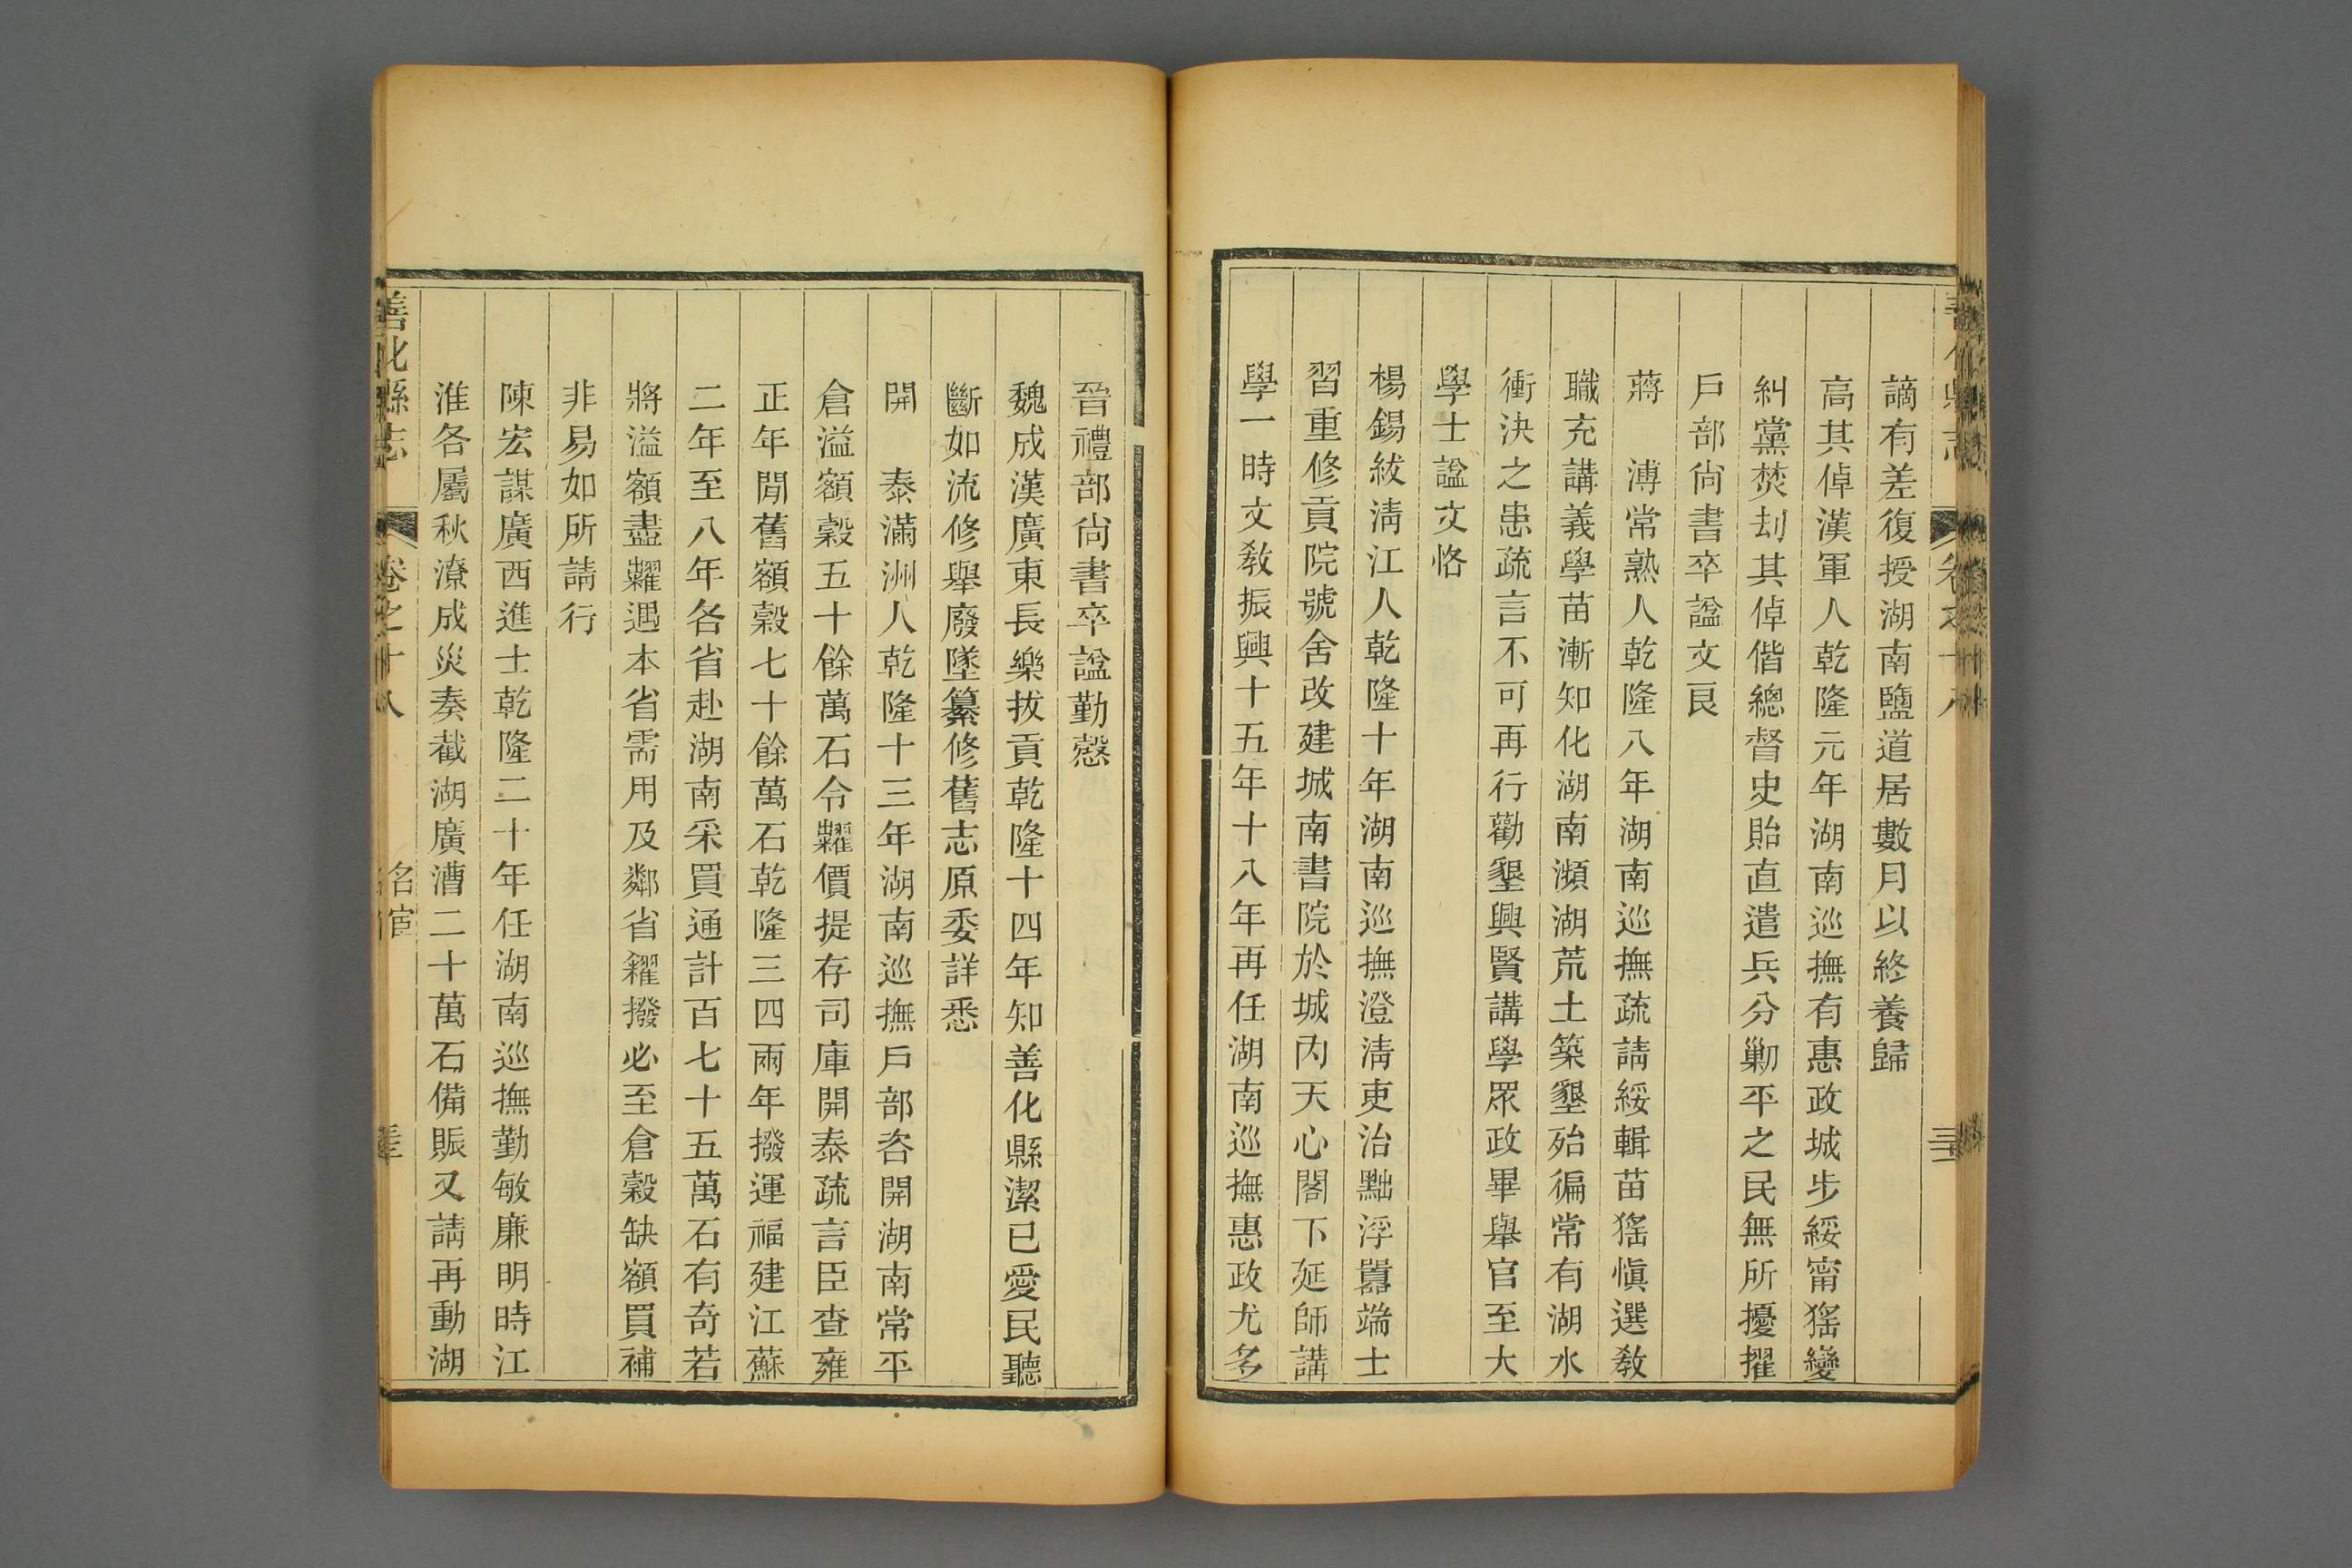 善化縣志 卷之十八
謫有差復授湖南鹽道居數月以終養歸
高其倬漢軍人乾隆元年湖南巡撫有惠政城步綏甯猺變
糾黨焚刦其倬偕總督史貽直遣兵分勦平之民無所擾擢
戶部尙書卒諡文良
蔣溥常熟人乾隆八年湖南巡撫疏請綏輯苗猺愼選敎
職充講義學苗漸知化湖南瀕湖荒土築墾殆徧常有湖水
衝決之患疏言不可再行勸墾興賢講學眾政畢舉官至大
學士諡文恪
楊錫紱淸江人乾隆十年湖南巡撫澄淸吏治黜浮囂端士
習重修貢院號舍改建城南書院於城內天心閣下延師講
學一時文敎振興十五年十八年再任湖南巡撫惠政尤多
晉禮部尙書卒諡勤愨
魏成漢廣東長樂拔貢乾隆十四年知善化縣潔已愛民聽
斷如流修舉廢墜纂修舊志原委詳悉
開泰滿洲人乾隆十三年湖南巡撫戶部咨開湖南常平
倉溢額穀五十餘萬石令糶價提存司庫開泰疏言臣查雍
正年閒舊額穀七十餘萬石乾隆三四兩年撥運福建江蘇
二年至八年各省赴湖南采買通計百七十五萬石有奇若
將溢額盡糶遇本省需用及鄰省糴撥必至倉穀缺額買補
非易如所請行
陳宏謀廣西進士乾隆二十年任湖南巡撫勤敏廉明時江
淮各屬秋潦成災奏截湖廣漕二十萬石備賑又請再動湖
善化縣志 卷之十八 名宦